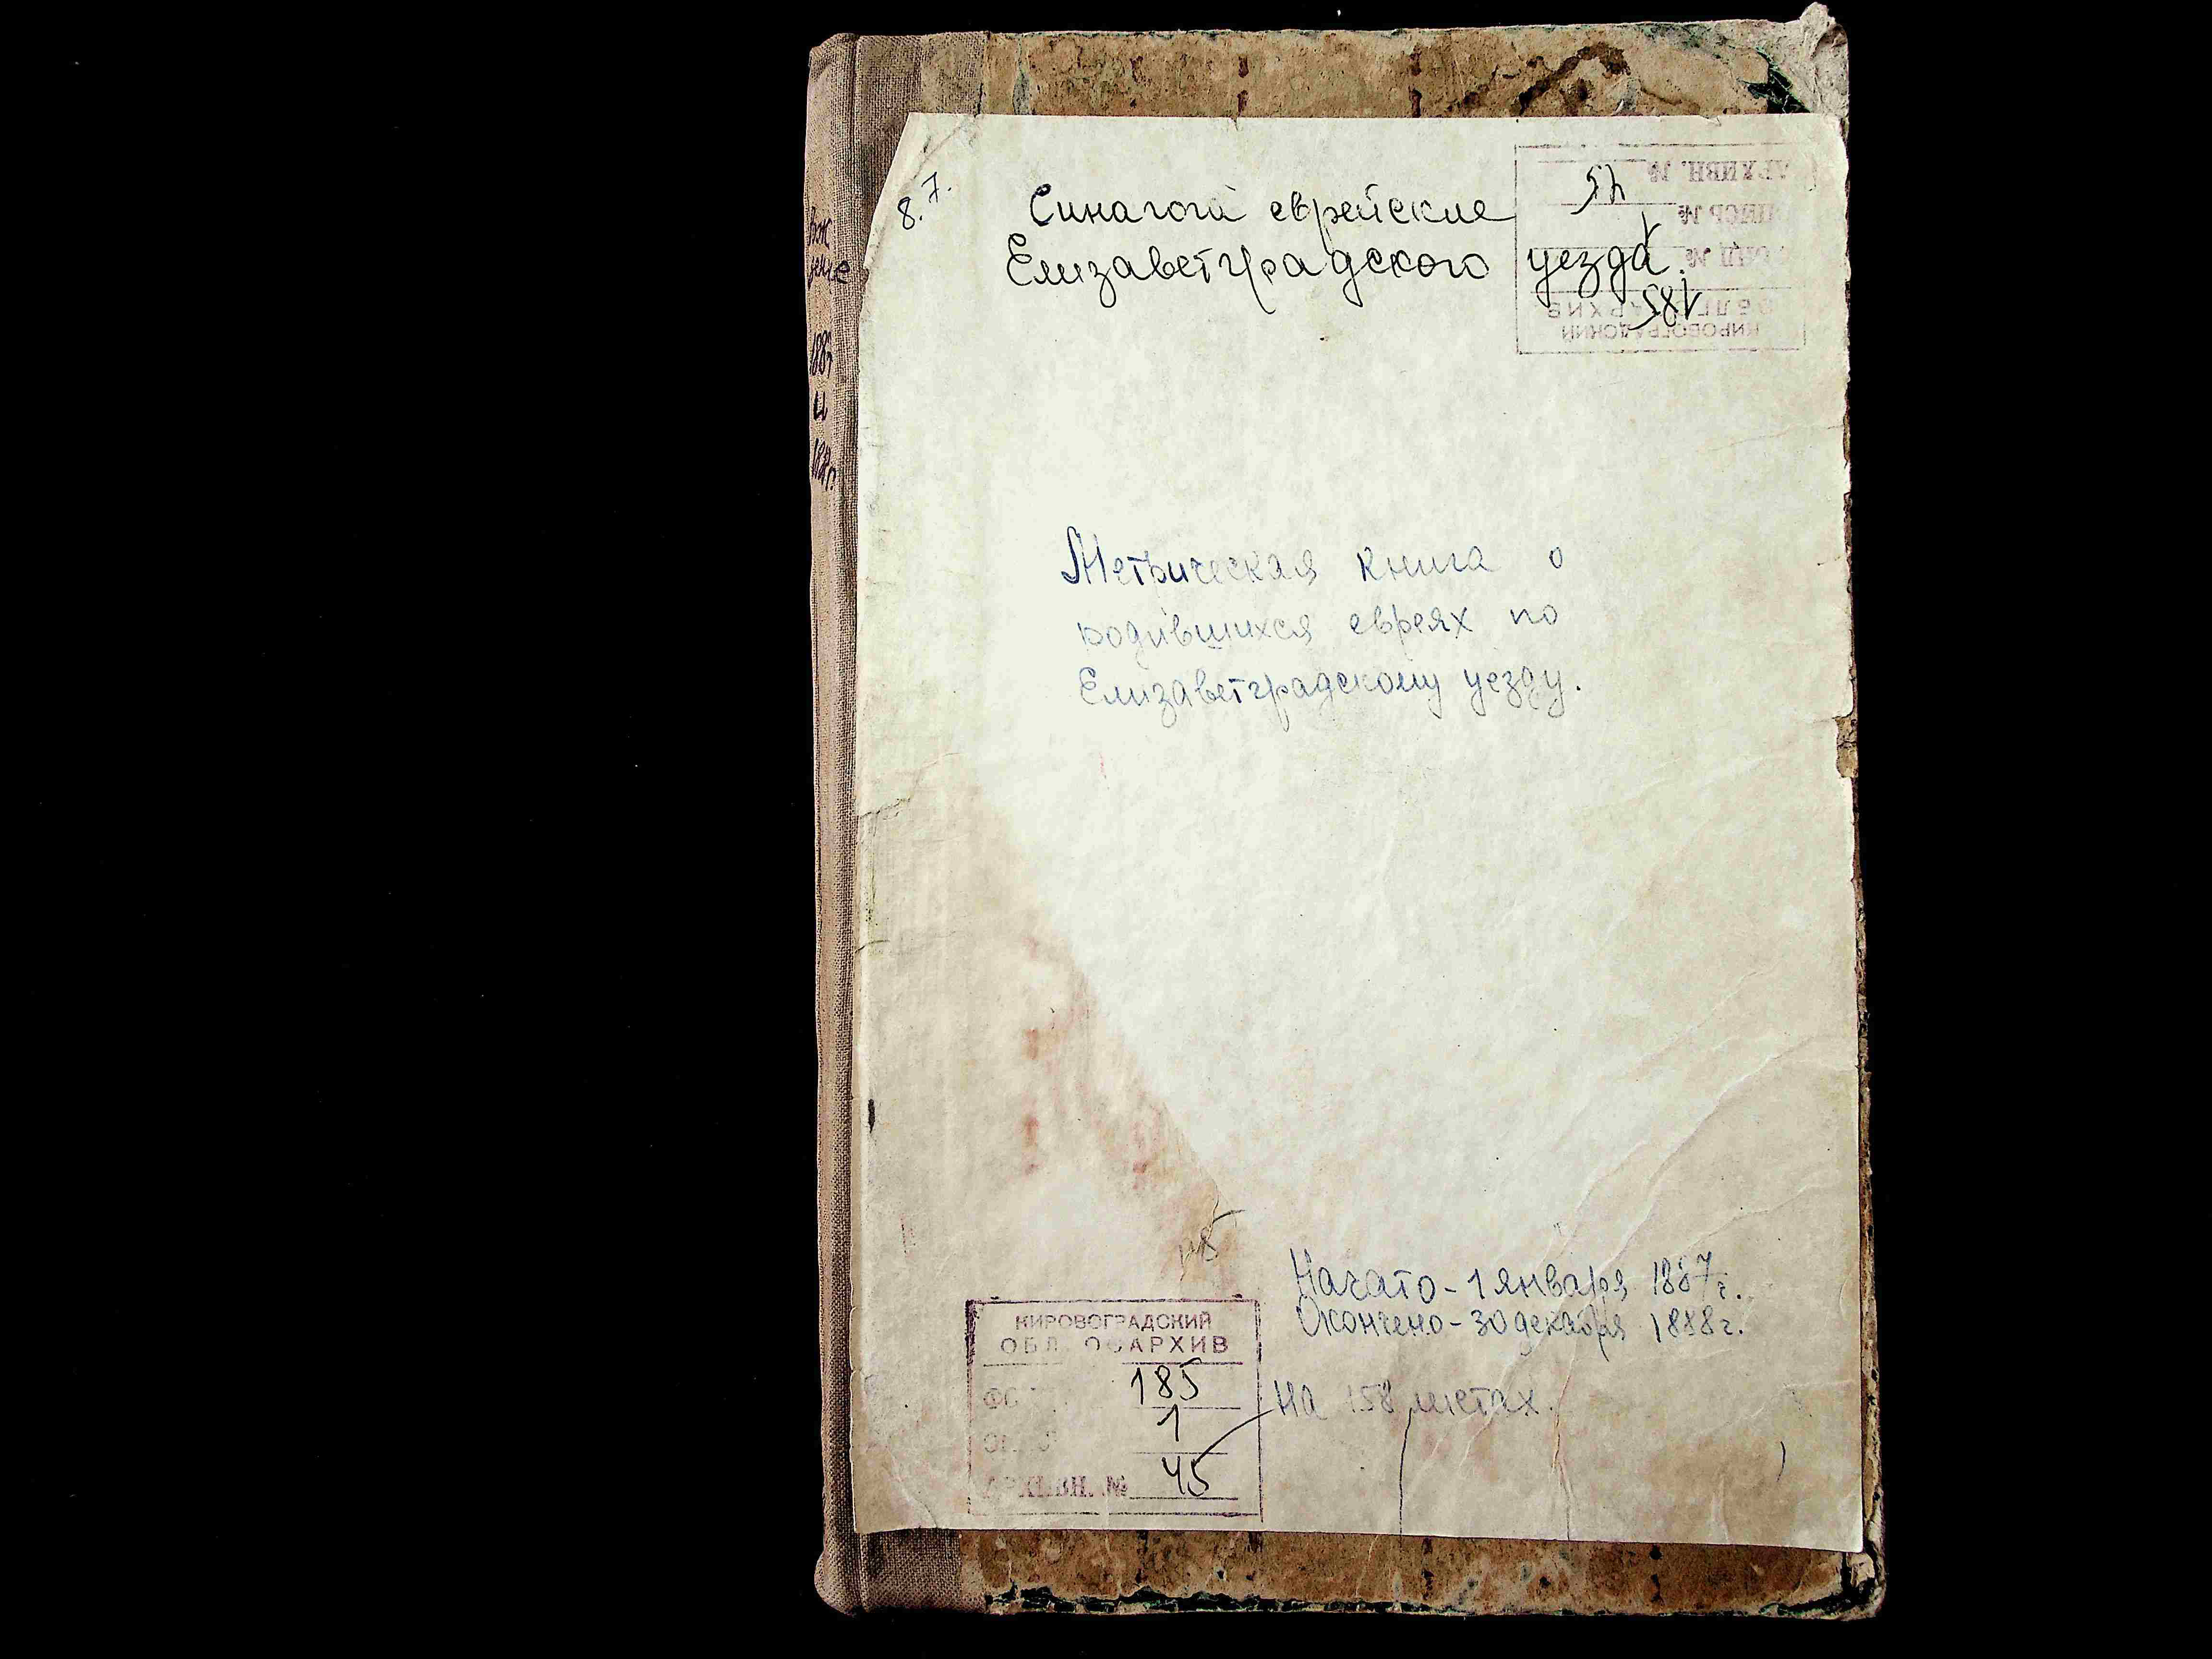 8.7.
Синагоги еврейские
Елизаветградского уезда.
АРХИВН. № 45
ОПИСЬ № 1
ФОНД № 185
КИРОВОГРАДСКИЙ
Метрическая книга о
родившихся евреях по
Елизаветградскому уезду.
Начато - 1 января 1887 г.
Окончено - 30 декабря 1888 г.
на 158 листах.
КИРОВОГРАДСКИЙ
ОБЛ. ГОСАРХИВ
185
1
АРХИВН. № 45
1887
и